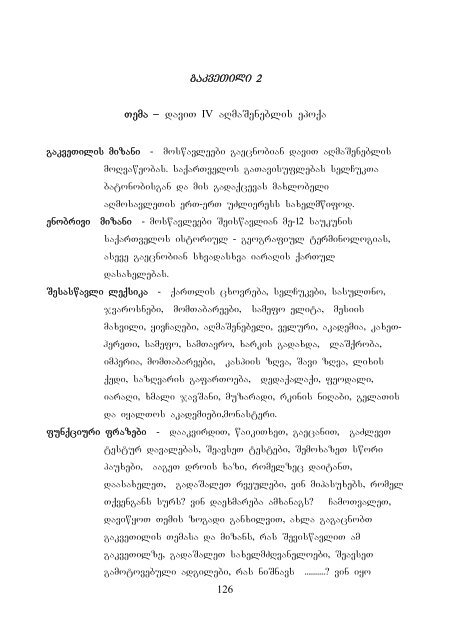 გაკვეთილი 2
თემა – დავით IV აღმაშენებლის ეპოქა
გაკვეთილის მიზანი - მოსწავლეები გაეცნობიან დავით აღმაშენებლის
მოღვაწეობას. საქართველოს გათავისუფლებას სელჩუკთა
ბატონობისგან და მის გადაქცევას მახლობელი
აღმოსავლეთის ერთ-ერთ უძლიერესს სახელმწიფოდ.
ენობრივი მიზანი - მოსწავლეები შეისწავლიან მე-12 საუკუნის
საქართველოს ისტორიულ - გეოგრაფიულ ტერმინოლოგიას,
ასევე გაეცნობიან სხვადასხვა იარაღის ქართულ
დასახელებას.
შესასწავლი ლექსიკა - ქართლის ცხოვრება, სელჩუკები, სასულთნო,
ჯვაროსნები, მომთაბარეები, სამეფო ელიტა, მესიის
მახვილი, ყივჩაღები, აღმაშენებელი, ველური, აკადემია, კახეთ-
ჰერეთი, სამეფო, სამთავრო, ხარკის გადახდა, ლაშქრობა,
იმპერია, მომთაბარეები, კასპიის ზღვა, შავი ზღვა, ლიხის
ქედი, საზღვარის გაფართოება, დედაქალაქი, ფეოდალი,
იარაღი, ხმალი ჯავშანი, მუზარადი, რკინის ნიღაბი, გელათის
და იყალთოს აკადემიები,მონასტერი.
ფუნქციური ფრაზები - დააკვირდით, წაიკითხეთ, გაეცანით, გაძლევთ
ტესტურ დავალებას, შეავსეთ ტესტები, შემოხაზეთ სწორი
პაუხები, ააგეთ დროის ხაზი, რომელზეც დაიტანთ,
დაასახელეთ, გადაშალეთ რვეულები, ვინ მიპასუხებს, რომელ
თქვენგანს სურს? ვინ დაეხმარება ამხანაგს? ჩამოთვალეთ,
დავიწყოთ თემის ზოგადი განხილვით, ახლა გაგაცნობთ
გაკვეთილის თემასა და მიზანს, რას შევისწავლით ამ
გაკვეთილზე, გადაშალეთ სახელმძღვანელოები, შეავსეთ
გამოტოვებული ადგილები, რას ნიშნავს ..........? ვინ იყო
126